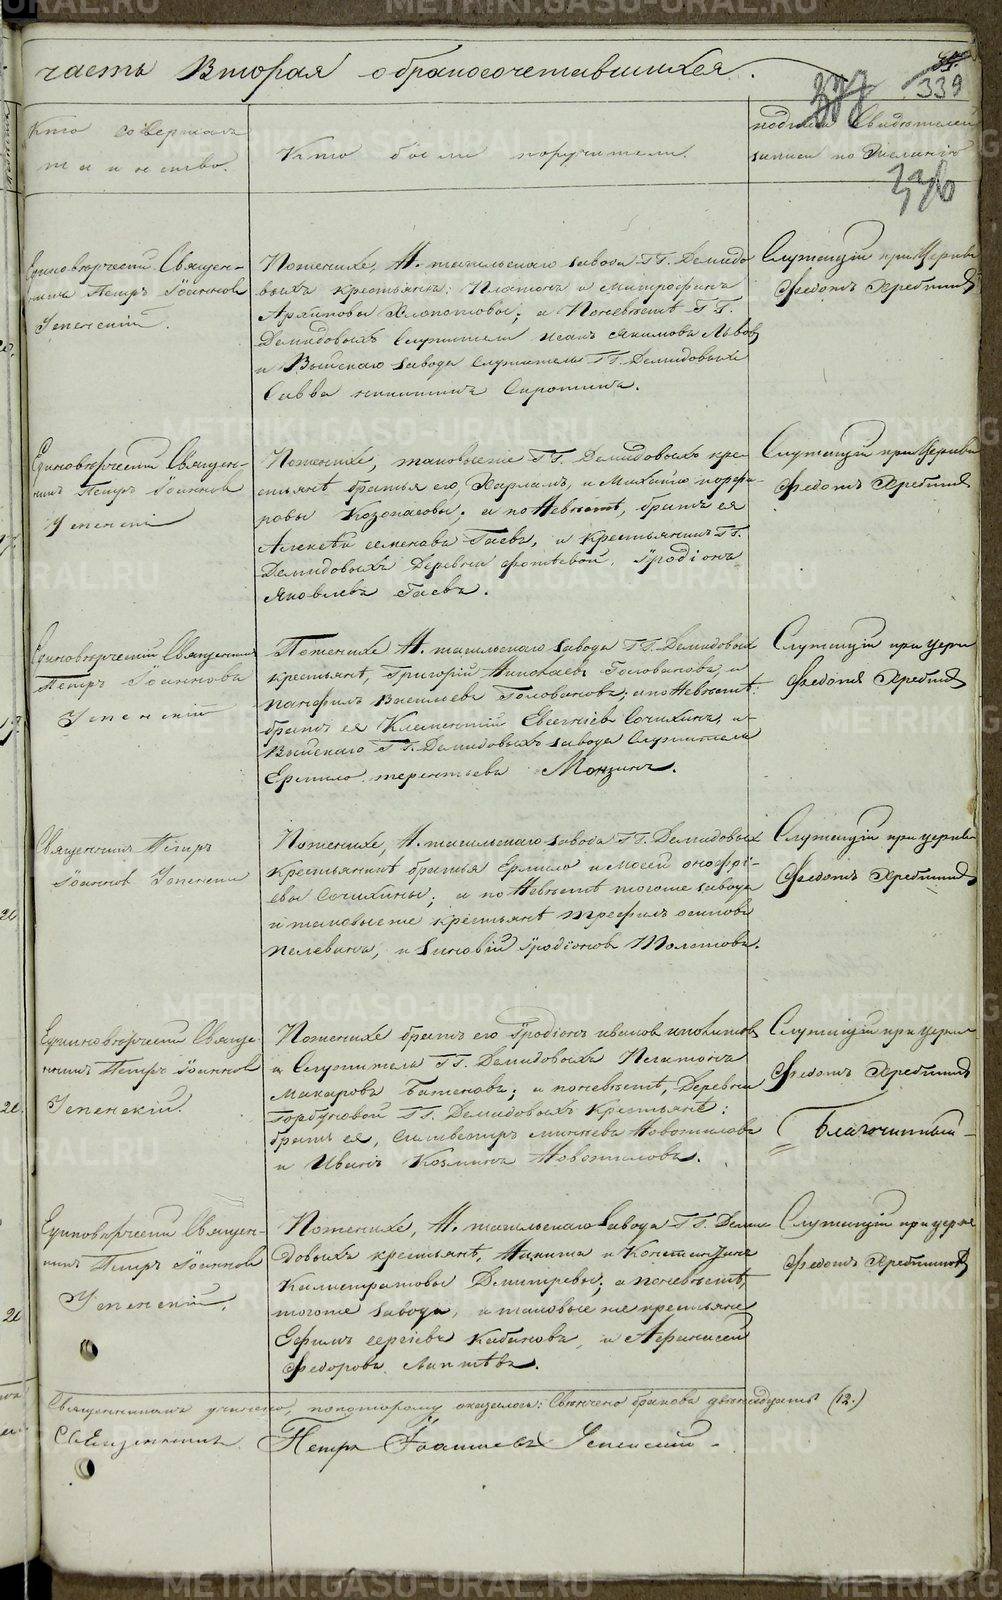 часть Вторая обракосочетавшихся.
339
336
Кто совершал
таинство.
Кто были поручители.
подписи Свидетелей
записи по желанію
Единоверческій Священ-
никъ Петръ Іоанновъ
Успенскій.
По женихе, Н. тагильскаго завода ГГ. Демидо
выхъ крестьяне: Платонъ и Митрофанъ
Архиповы Хлопотовы; и По невѣсте ГГ.
Демидовыхъ Служители Исакъ Якимовъ Львовъ
и Выйскаго завода Служитель ГГ. Демидовыхъ
Савва никитинъ Сиротинъ.
Служащій при Церкви
Федотъ Хребтиковъ
Единоверческій Священ-
никъ Петръ Іоанновъ
Успенскій
По женихе, таковыеже ГГ. Демидовыхъ кре-
стьянѣ братья его, Харламъ, и Михайло порфи-
ровы Козопасовы; а по Невѣсте, братъ ея
Алексѣй семеновъ Гаевъ, и крестьянинъ ГГ.
Демидовыхъ Деревни фотѣевой, Іродіонъ
Яковлевъ Гаевъ.
Служащій при Церкви
Федотъ Хребтиковъ
Единоверческій Священникъ
Петръ Іоанновъ
Успенскій
По женихе Н. тагильскаго завода ГГ. Демидовыхъ
крестьянѣ, Григорій Николаевъ Головановъ, и
панфилъ Васильевъ Головановъ; а по Невѣсте:
братъ ея Климентій Евсегнѣевъ Сочихинъ, и
Выйскаго ГГ. Демидовыхъ завода Служитель
Ермило терентьевъ Монзинъ.
Служащій при церкви
Федотъ Хребтиковъ
Священникъ Петръ
Іоанновъ Успенскій
По женихе, Н. тагильскаго завода ГГ. Демидовыхъ
Крестьянинѣ братья Ермило и Мосей онофрі-
евы Сочихины; а по Невѣсте тогоже завода
и таковыеже крестьянѣ трефилъ осиповъ
пелевинъ, и Зиновій Іродіоновъ Толстовъ.
Служащій при церкви
Федотъ Хребтиковъ
Единоверческій Священ
никъ Петръ Іоанновъ
Успенскій.
По женихе братъ его Іродіонъ ивановъ
и Служитель ГГ. Демидовыхъ Платонъ
Макаровъ Батеновъ; и по невѣсте, Деревни
Горбуновой ГГ. Демидовыхъ Крестьянѣ:
братъ ея, Силиверстъ Новожиловъ
и Иванъ Козминъ Новожиловъ.
Служащій при церкви
Федотъ Хребтиковъ
Благочинный
Единоверческій Священ-
никъ Петръ Іоанновъ
Успенскій.
По женихе, Н. тагильскаго завода ГГ. Деми
довыхъ крестьянѣ, Никита и Константинъ
Калистратовы Дмитревы; а по невѣсте,
тогоже завода, и таковыеже крестьяне
Ефимъ сергѣевъ Кабановъ, и Афанасей
Федоровъ Лаптѣвъ.
Служащій при церкве
Федотъ Хребтиковъ
Священникомъ учинено, по которому оказалось: Свѣнчено браковъ двенадцать (12.)
Священникъ Петръ Іоанновъ Успенскій.
METRIKI.GASO-URAL.RU